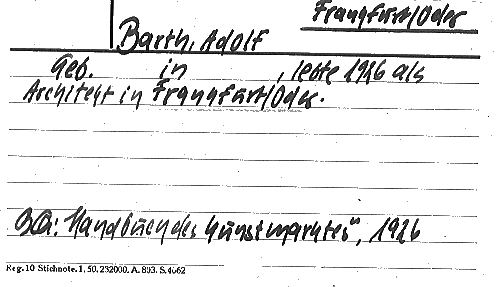 Frankfurt/Oder
Barth, Adolf
Geb. in , lebte 1926 als
Architekt in Frankfurt/Oder.
BQ: "Handbuch des Kunstmarktes", 1926
Reg. 10 Stichnote. 1, 50. 232000. A. 803. S. 4662